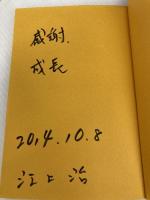 感謝、
成長
2014.10.8
江上治